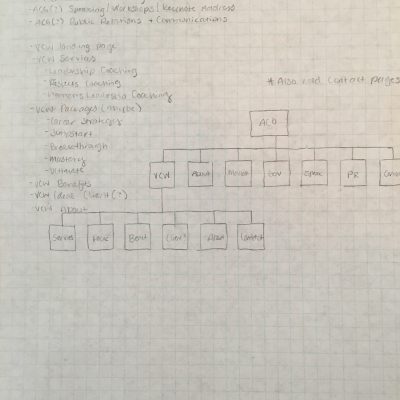 - ACG(?) Speaking/Workshops/Keynote Address
- ACG(?) Public Relations + Communications
- VCW landing page
- VCW Services
- Leadership Coaching
- Projects Coaching
- Women's Leadership Coaching
* Also need contact pages
- VCW Packages (maybe)
- Career Strategy
- Jumpstart
- Breakthrough
- Mastery
- Ultimate
- VCW Benefits
- VCW Ideal Client (?)
- VCW About
VCW About Gov Speak PR
Services Benft Client? About Contact